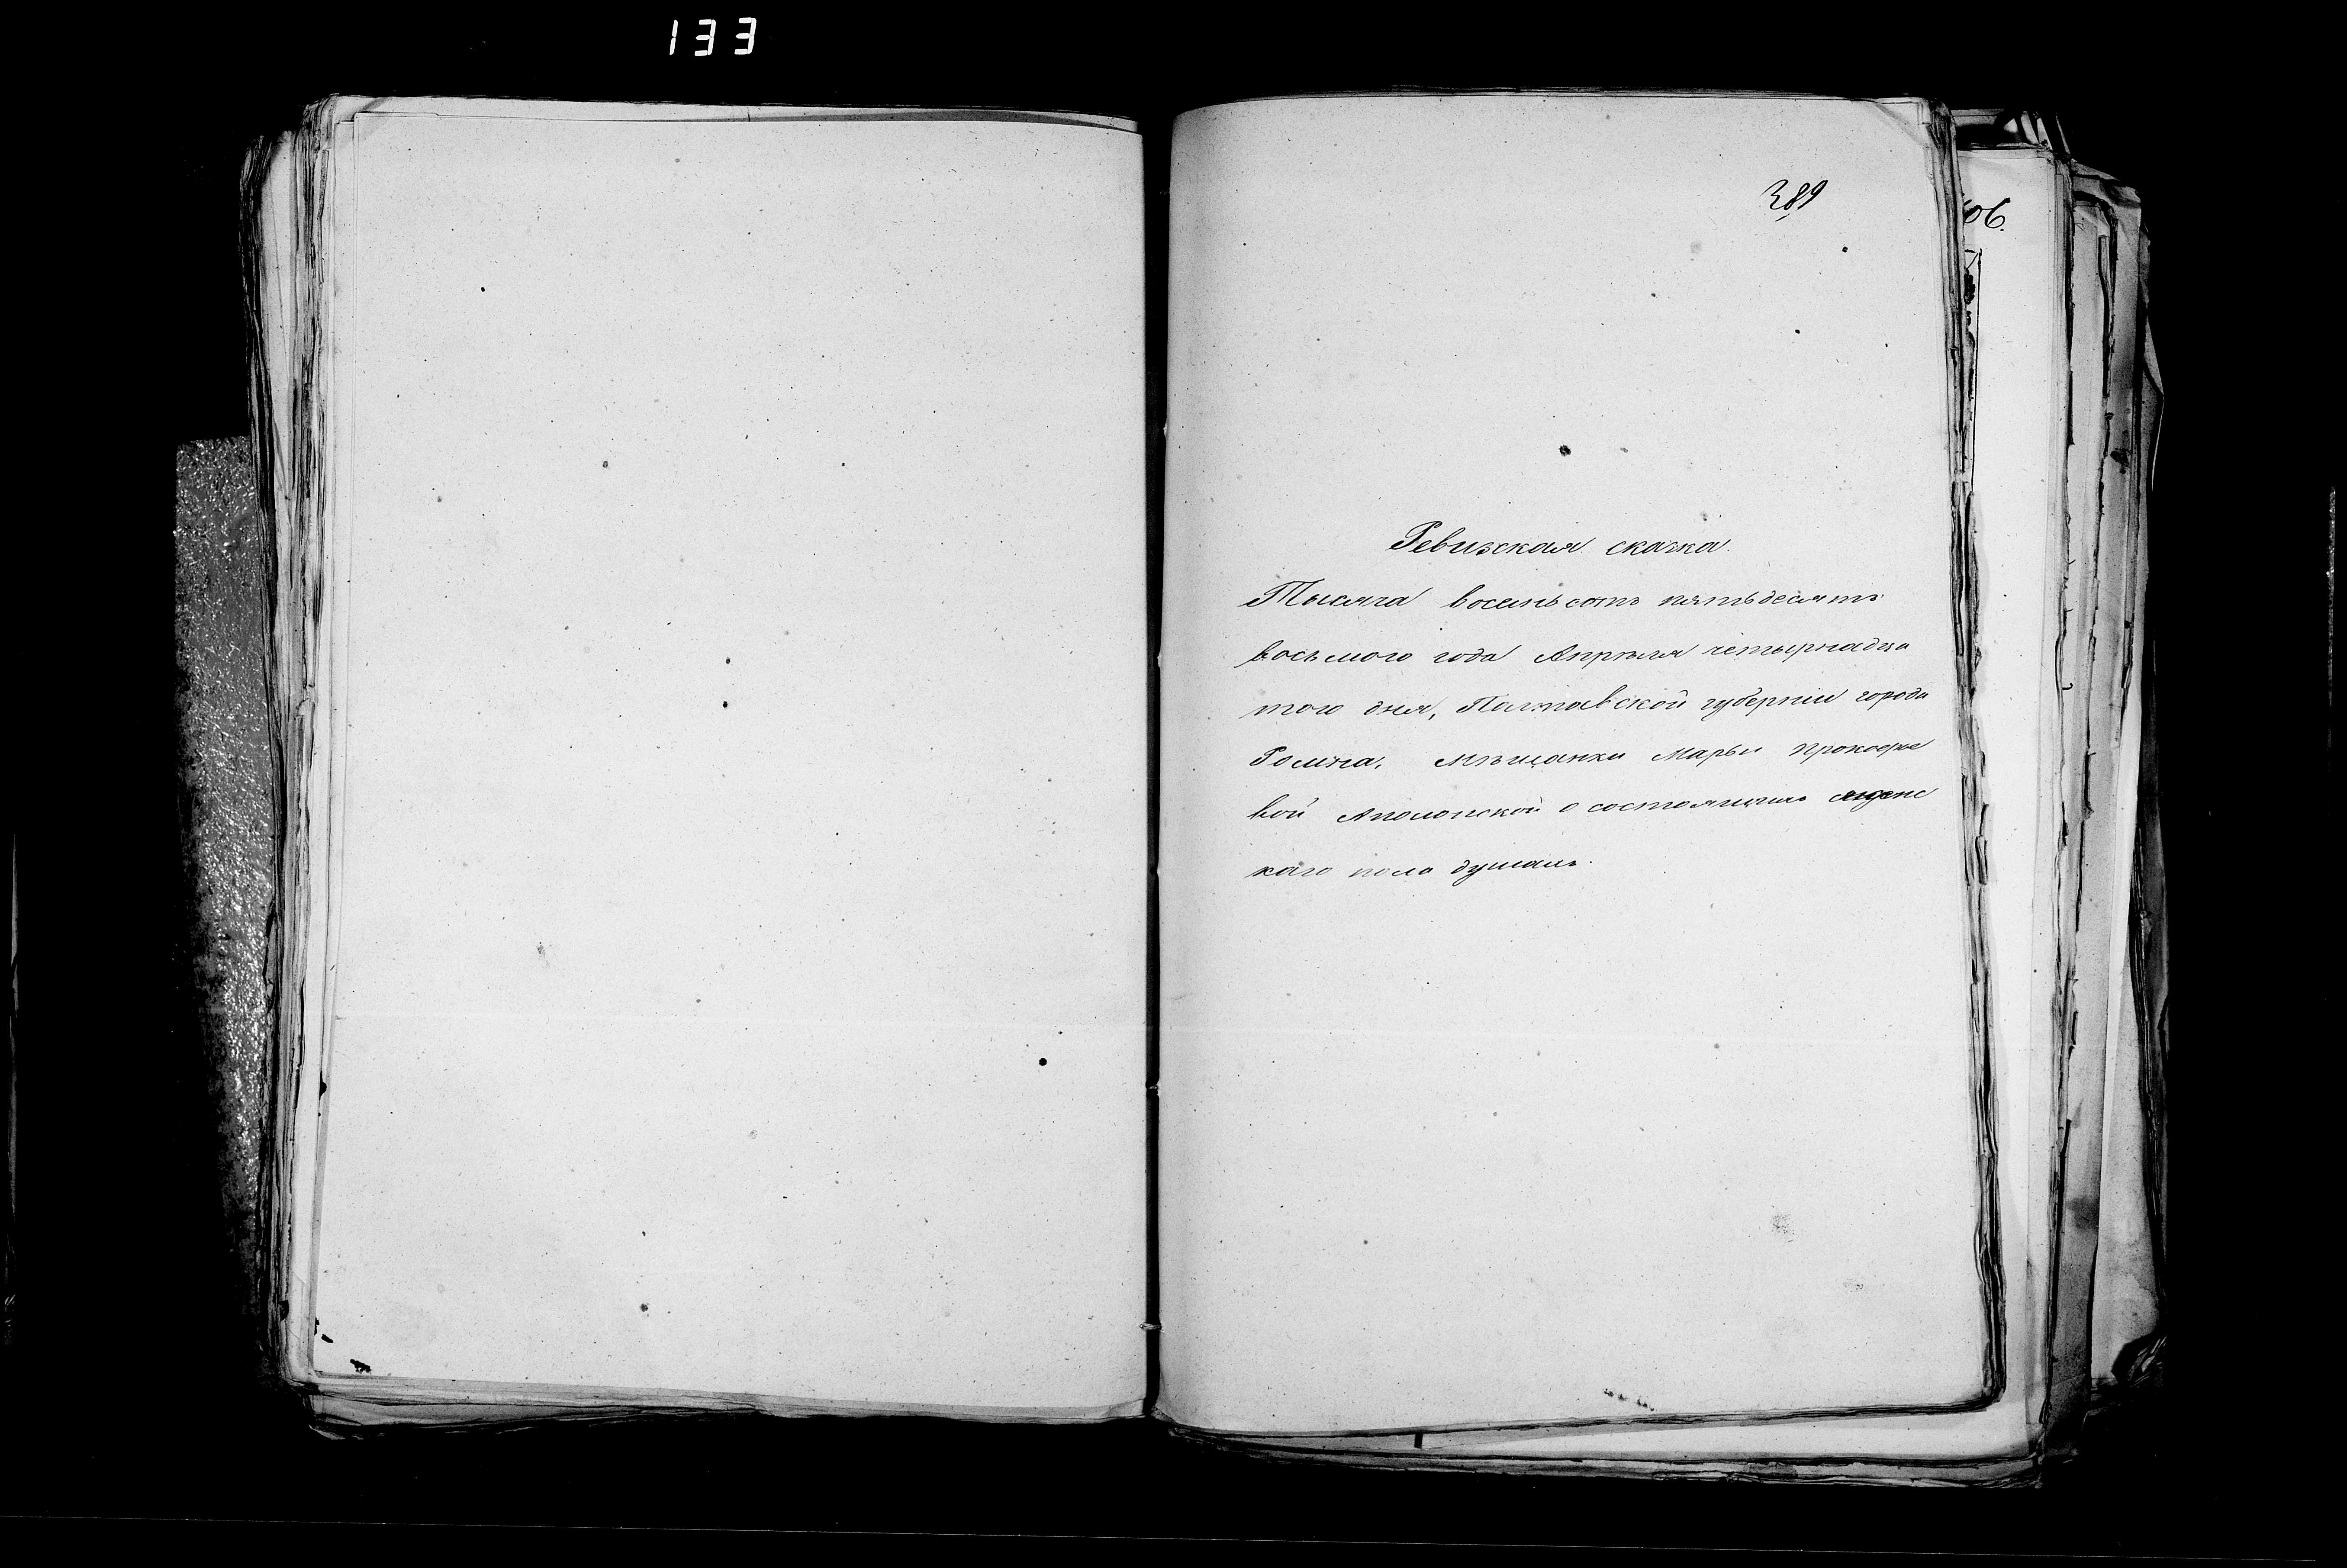 133
389
06.
Ревизская сказка.
Тысяча восемьсотъ пятьдесятъ
восьмого года Апрѣля четырнадца
того дня, Полтавской губерніи города
Ромна, мѣщанки Марьи Прокофье
вой о состоящихъ женс
каго пола душахъ.